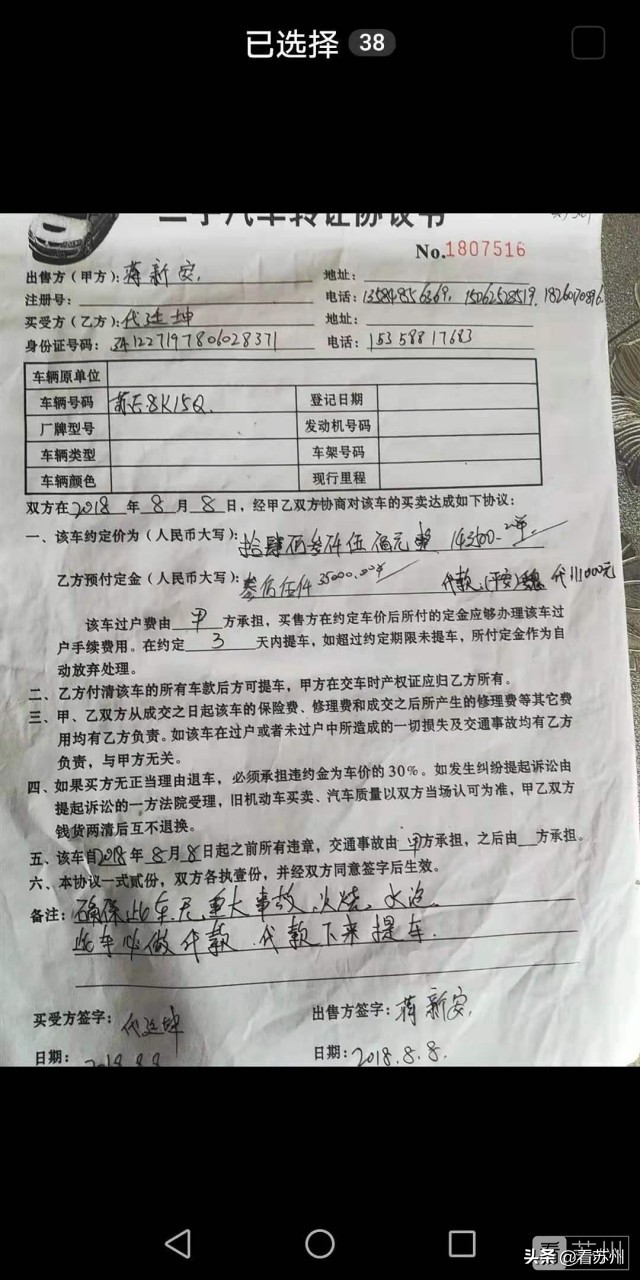 已选择 38
二手汽车转让协议书
No.1807516
出售方(甲方): 蒋新安. 地址:
注册号: 电话: 13584856369. 15062528519.
买受方(乙方): 代廷坤 地址:
身份证号码: 341227197806028371 电话: 15358817683
车辆原单位
车辆号码 登记日期
厂牌型号 发动机号码
车辆类型 车架号码
车辆颜色 现行里程
双方在2018年8月8日,经甲乙双方协商对该车的买卖达成如下协议:
一、该车约定价为(人民币大写):
乙方预付定金(人民币大写): 35000.00
该车过户费由 甲 方承担,买售方在约定车价后所付的定金应够办理该车过
户手续费用。在约定 3 天内提车,如超过约定期限未提车,所付定金作为自
动放弃处理。
二、乙方付清该车的所有车款后方可提车,甲方在交车时产权证应归乙方所有。
三、甲、乙双方从成交之日起该车的保险费、修理费和成交之后所产生的修理费等其它费
用均有乙方负责。如该车在过户或者未过户中所造成的一切损失及交通事故均有乙方
负责,与甲方无关。
四、如果买方无正当理由退车,必须承担违约金为车价的30%。如发生纠纷提起诉讼由
提起诉讼的一方法院受理,旧机动车买卖、汽车质量以双方当场认可为准,甲乙双方
钱货两清后互不退换。
五、该车自2018年8月8日起之前所有违章,交通事故由 甲方承担,之后由 方承担。
六、本协议一式贰份,双方各执壹份,并经双方同意签字后生效。
备注: 确保此车无重大事故、火烧、水泡.
此车必做代款.代款下来提车.
买受方签字: 代廷坤 出售方签字: 蒋新安.
日期: 2018.8.8 日期: 2018.8.8.
看苏州
头条@看苏州